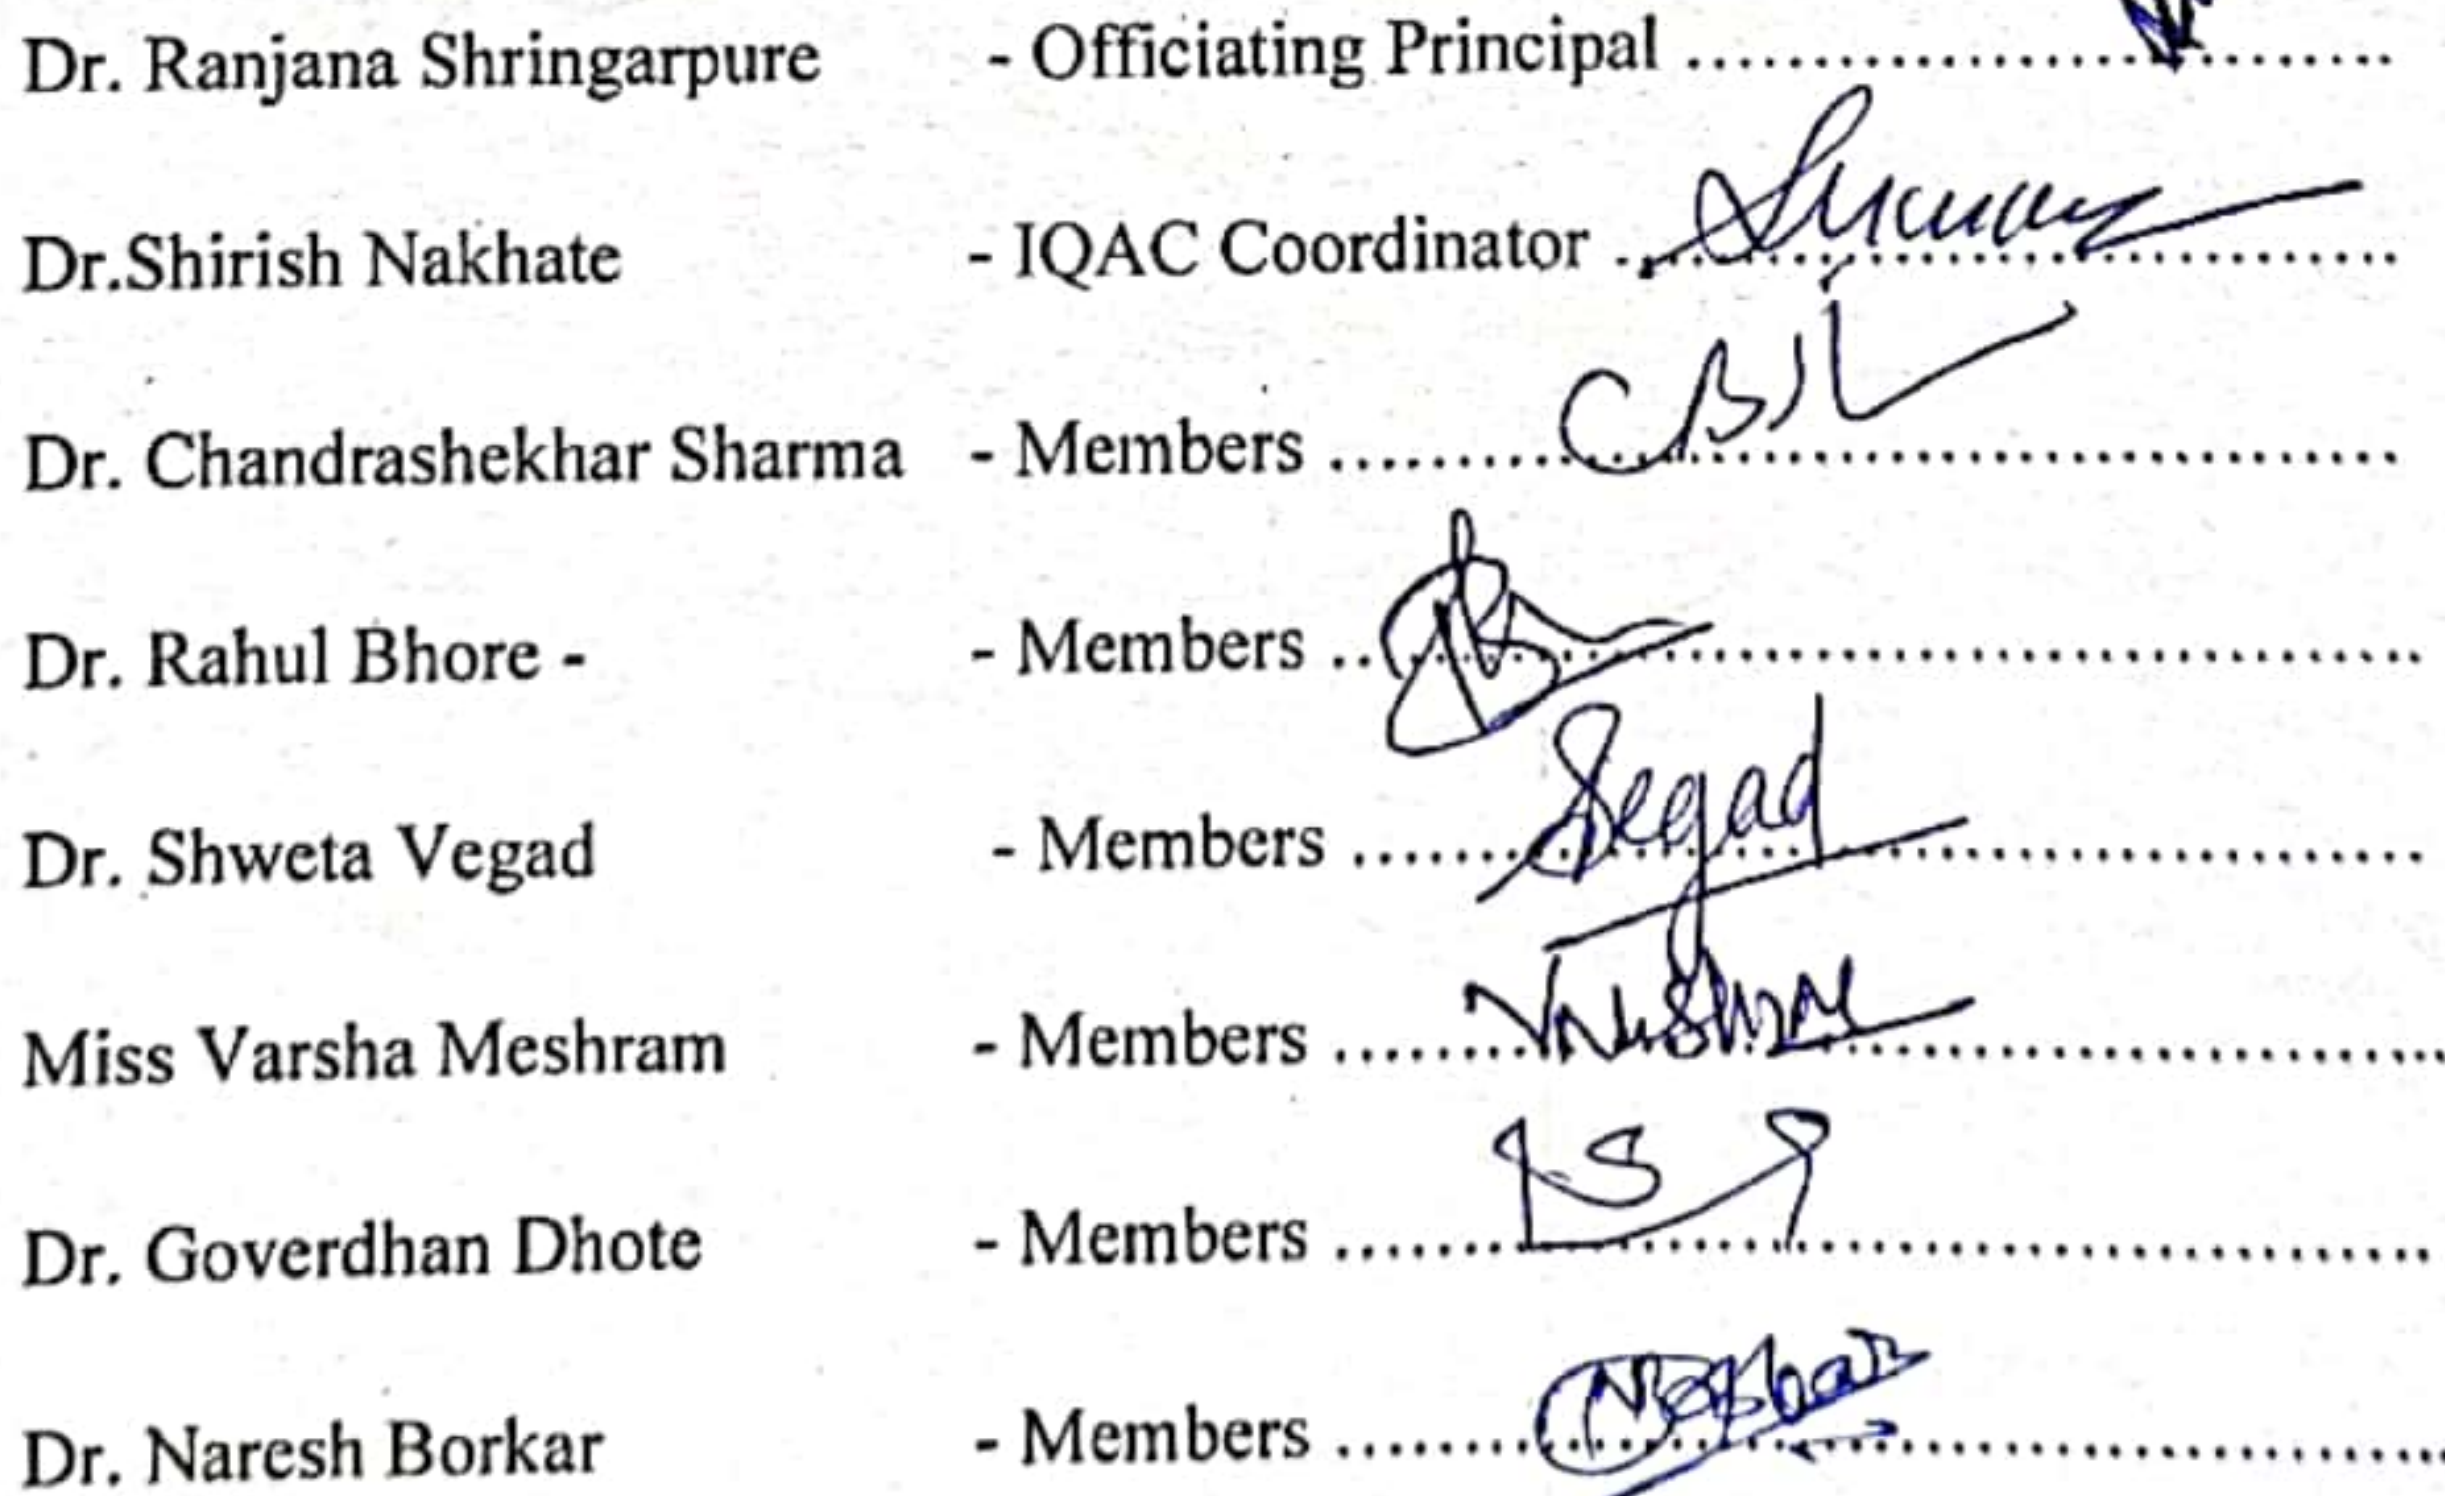 Dr. Ranjana Shringarpure - Officiating Principal ........................................
Dr.Shirish Nakhate - IQAC Coordinator ........................................
Dr. Chandrashekhar Sharma - Members ........................................
Dr. Rahul Bhore - - Members ........................................
Dr. Shweta Vegad - Members ........................................
Miss Varsha Meshram - Members ........................................
Dr. Goverdhan Dhote - Members ........................................
Dr. Naresh Borkar - Members ........................................